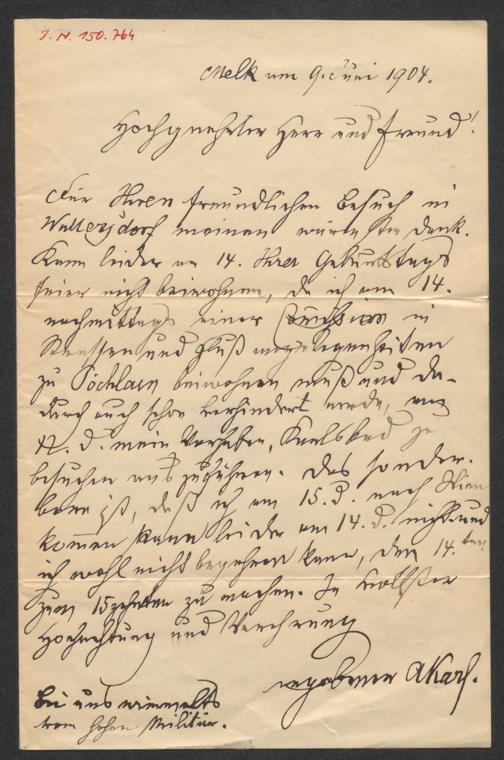 J.N. 150.764
Melk am 9. Juni 1904.
Hochgeehrter Herr und Freund!
Für Ihren freundlichen Besuch in
Waltersdorf meinen wärmsten Dank.
Kann leider an 14. Ihrer Geburtstags
feier nicht beiwohnen, da ich am 14.
nachmittags einer Comission in
Strassen und Fluß angelegenheiten
zu Pöchlarn beiwohnen muß und da-
durch auch schon verhindert werde, am
12. d. mein Vorhaben, Karlsbad zu
besuchen auszuführen. Das sonder-
bare ist, daß ich am 15. d. nach Wien
kommen kann leider am 14. d. nicht und
ich wohl nicht begehren kann, den 14.ten
zum 15zehnten zu machen. In vollster
Hochachtung und Verehrung
ergebener AKarl.
Bei uns wimmelts
vom hohen Militär.